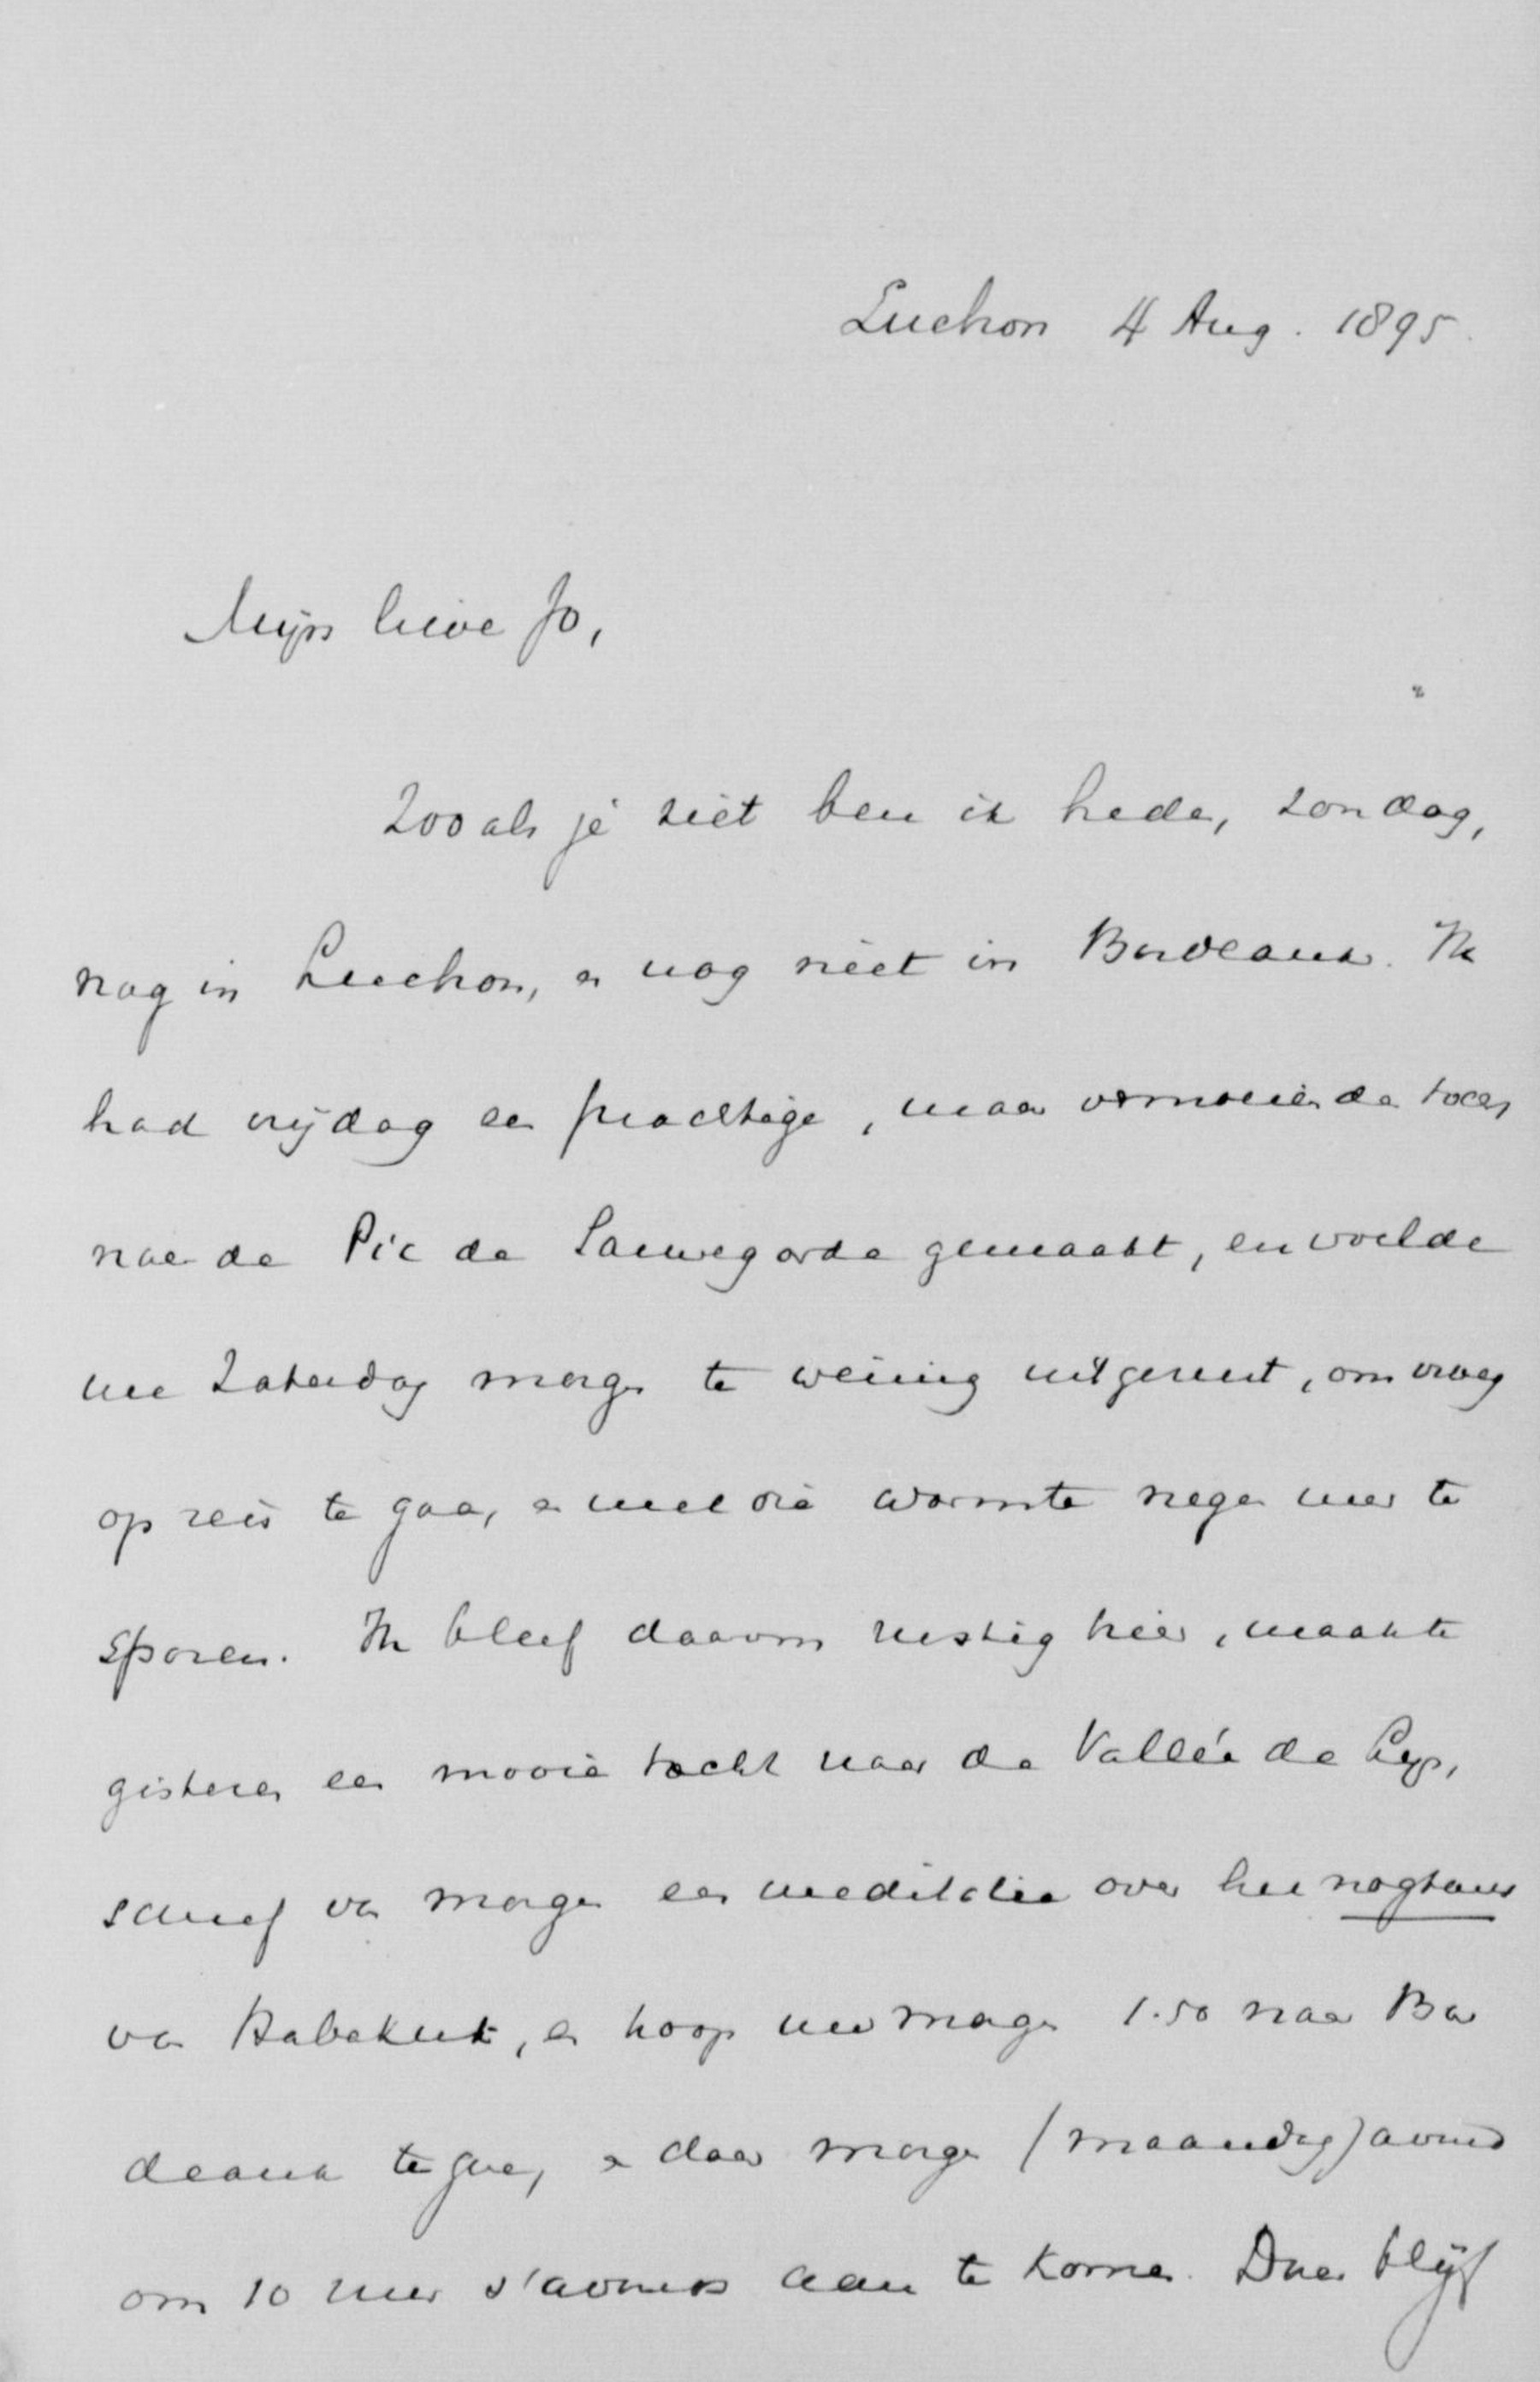 Luchon 4 Aug. 1895.
Mijn lieve Jo,
Zooals je ziet ben ik heden, Zondag,
nog in Luchon, en nog niet in Bordeaux. Ik
had vrijdag een prachtige, maar vermoeiende toer
naar de Pic de Sauvegarde gemaakt, en voelde
me Zaterdag morgen te weinig uitgerust, om vroeg
op reis te gaan, en met die warmte negen uur te
sporen. Ik bleef daarom rustig hier, maakte
gisteren een mooie tocht naar de Vallée de Lys,
schreef van morgen een meditatie over het nogtans
van Habakuk, en hoop nu morgen 1.50 naar Bor
deaux te gaan, en daar morgen (maandag) avond
om 10 uur s'avonds aan te komen. Daar blijf